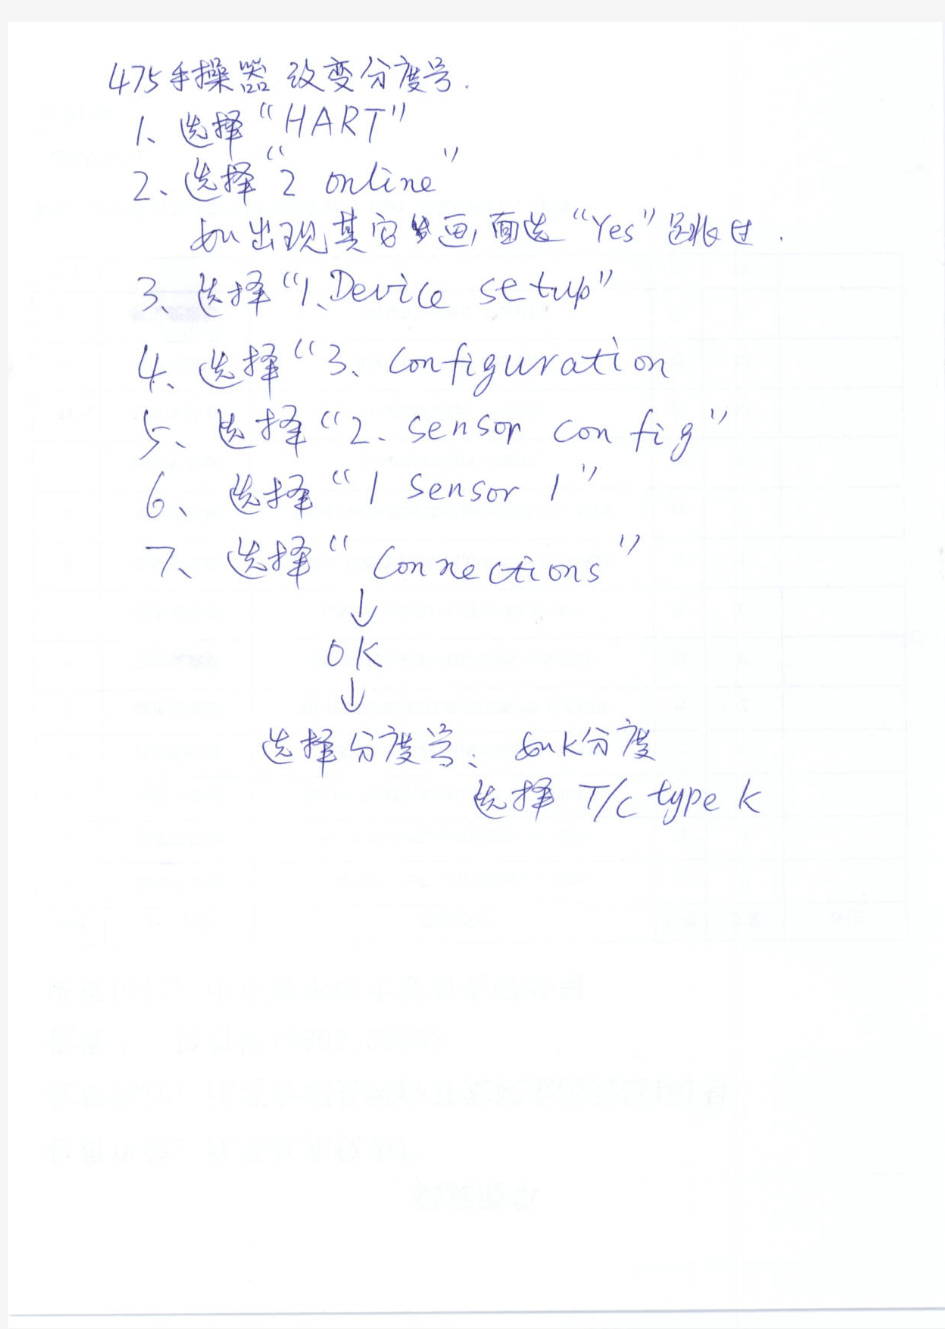 475手操器 改变分度号.
1、选择“HART”
2、选择“2 online”
如出现其它画面选“Yes”跳过.
3、选择“1、Device setup”
4、选择“3、configuration
5、选择“2、sensor config”
6、选择“1 sensor 1”
7、选择“Connections”
↓
OK
↓
选择分度号：如K分度
选择 T/C type K